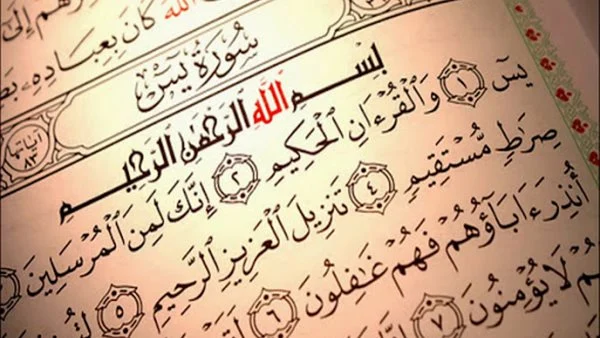 إِلَىٰٓ
ٱللَّهَ كَانَ بِعِبَادِهِۦ
سُورَةُ يسٓ
آياتها ٨٣
بِسْمِ ٱللَّهِ ٱلرَّحْمَٰنِ ٱلرَّحِيمِ
يسٓ ١ وَٱلْقُرْءَانِ ٱلْحَكِيمِ ٢ إِنَّكَ لَمِنَ ٱلْمُرْسَلِينَ
صِرَٰطٍ مُّسْتَقِيمٍ ٤ تَنزِيلَ ٱلْعَزِيزِ ٱلرَّحِيمِ ٥
أُنذِرَ ءَابَآؤُهُمْ فَهُمْ غَٰفِلُونَ ٦
لَا يُؤْمِنُونَ ٧